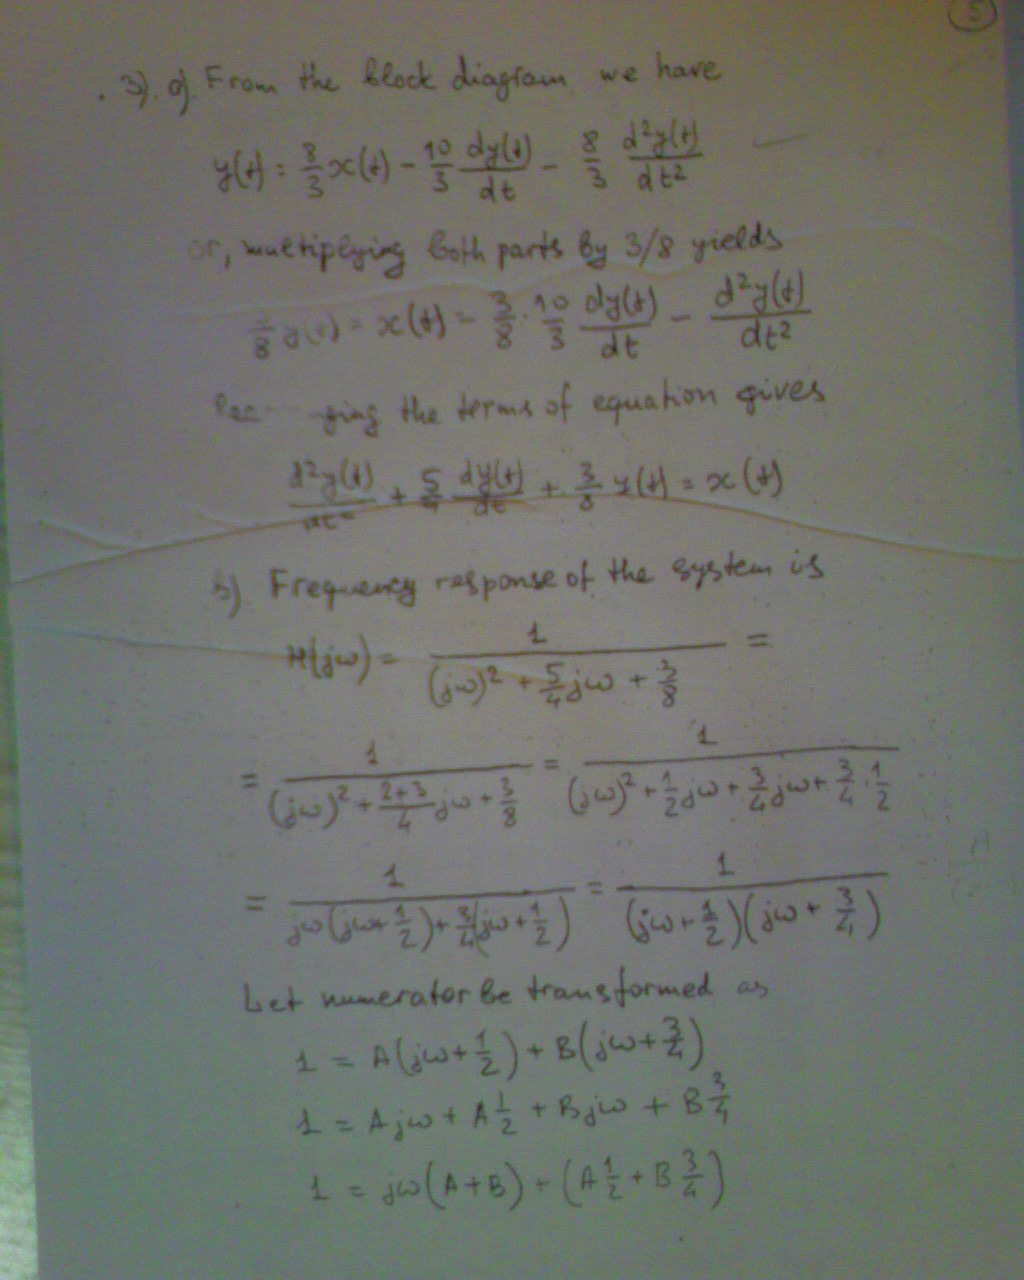 5
3). a). From the block diagram we have
y(t) = 8/3 x(t) - 10/3 dy(t)/dt - 8/3 d²y(t)/dt²
or, multiplying both parts by 3/8 yields
/8 y(t) = x(t) - 3/8 · 10/3 dy(t)/dt - d²y(t)/dt²
the terms of equation gives
d²y(t)/dt² + 5/4 dy(t)/dt + 3/8 y(t) = x(t)
b) Frequency response of the system is
H(jω) = 1/((jω)² + 5/4 jω + 3/8) =
= 1/((jω)² + (2+3)/4 jω + 3/8) = 1/((jω)² + 1/2 jω + 3/4 jω + 3/4 · 1/2)
= 1/(jω(jω + 1/2) + 3/4(jω + 1/2)) = 1/((jω + 1/2)(jω + 3/4))
Let numerator be transformed as
1 = A(jω + 1/2) + B(jω + 3/4)
1 = Ajω + A 1/2 + Bjω + B 3/4
1 = jω(A+B) + (A 1/2 + B 3/4)